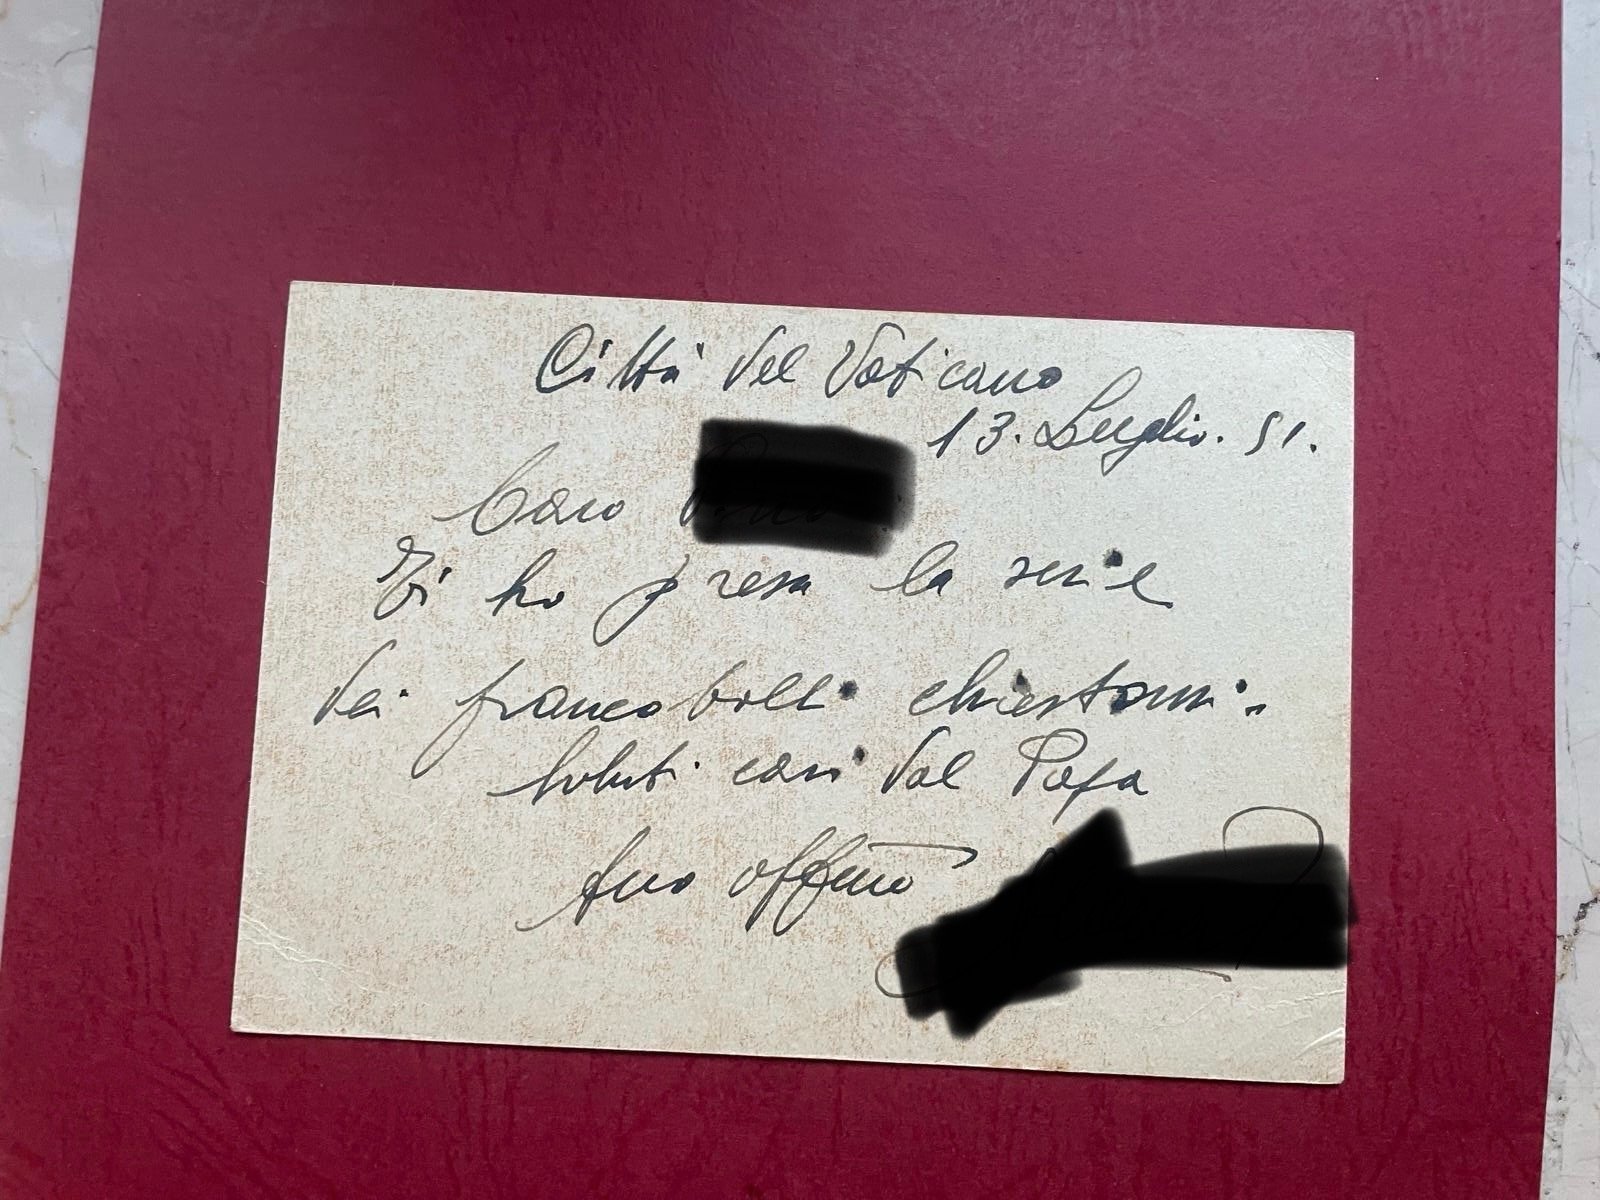 Città del Vaticano
13. Luglio. 51.
Caro
Ti ho presa la serie
dei francobolli chiestami.
Saluti cari dal Papa
tuo aff.mo